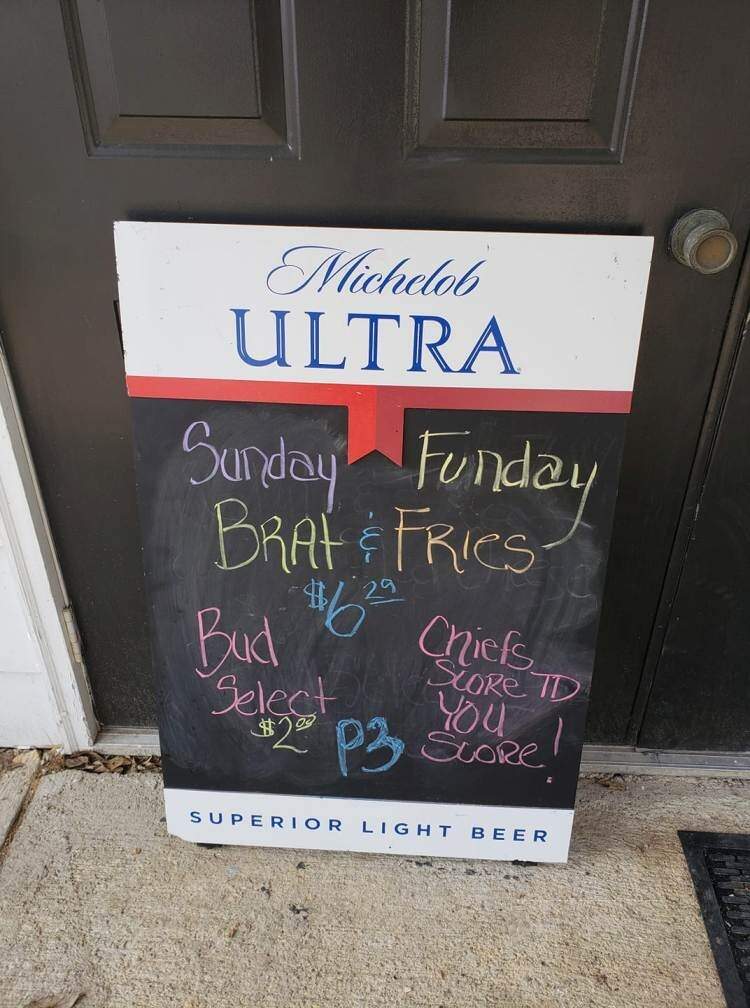 Michelob
ULTRA
Sunday Funday
BRAt & FRIES
$6.29
Bud
Select
$2.00
P3
Chiefs
SCORE TD
YOU
SCORE!
SUPERIOR LIGHT BEER